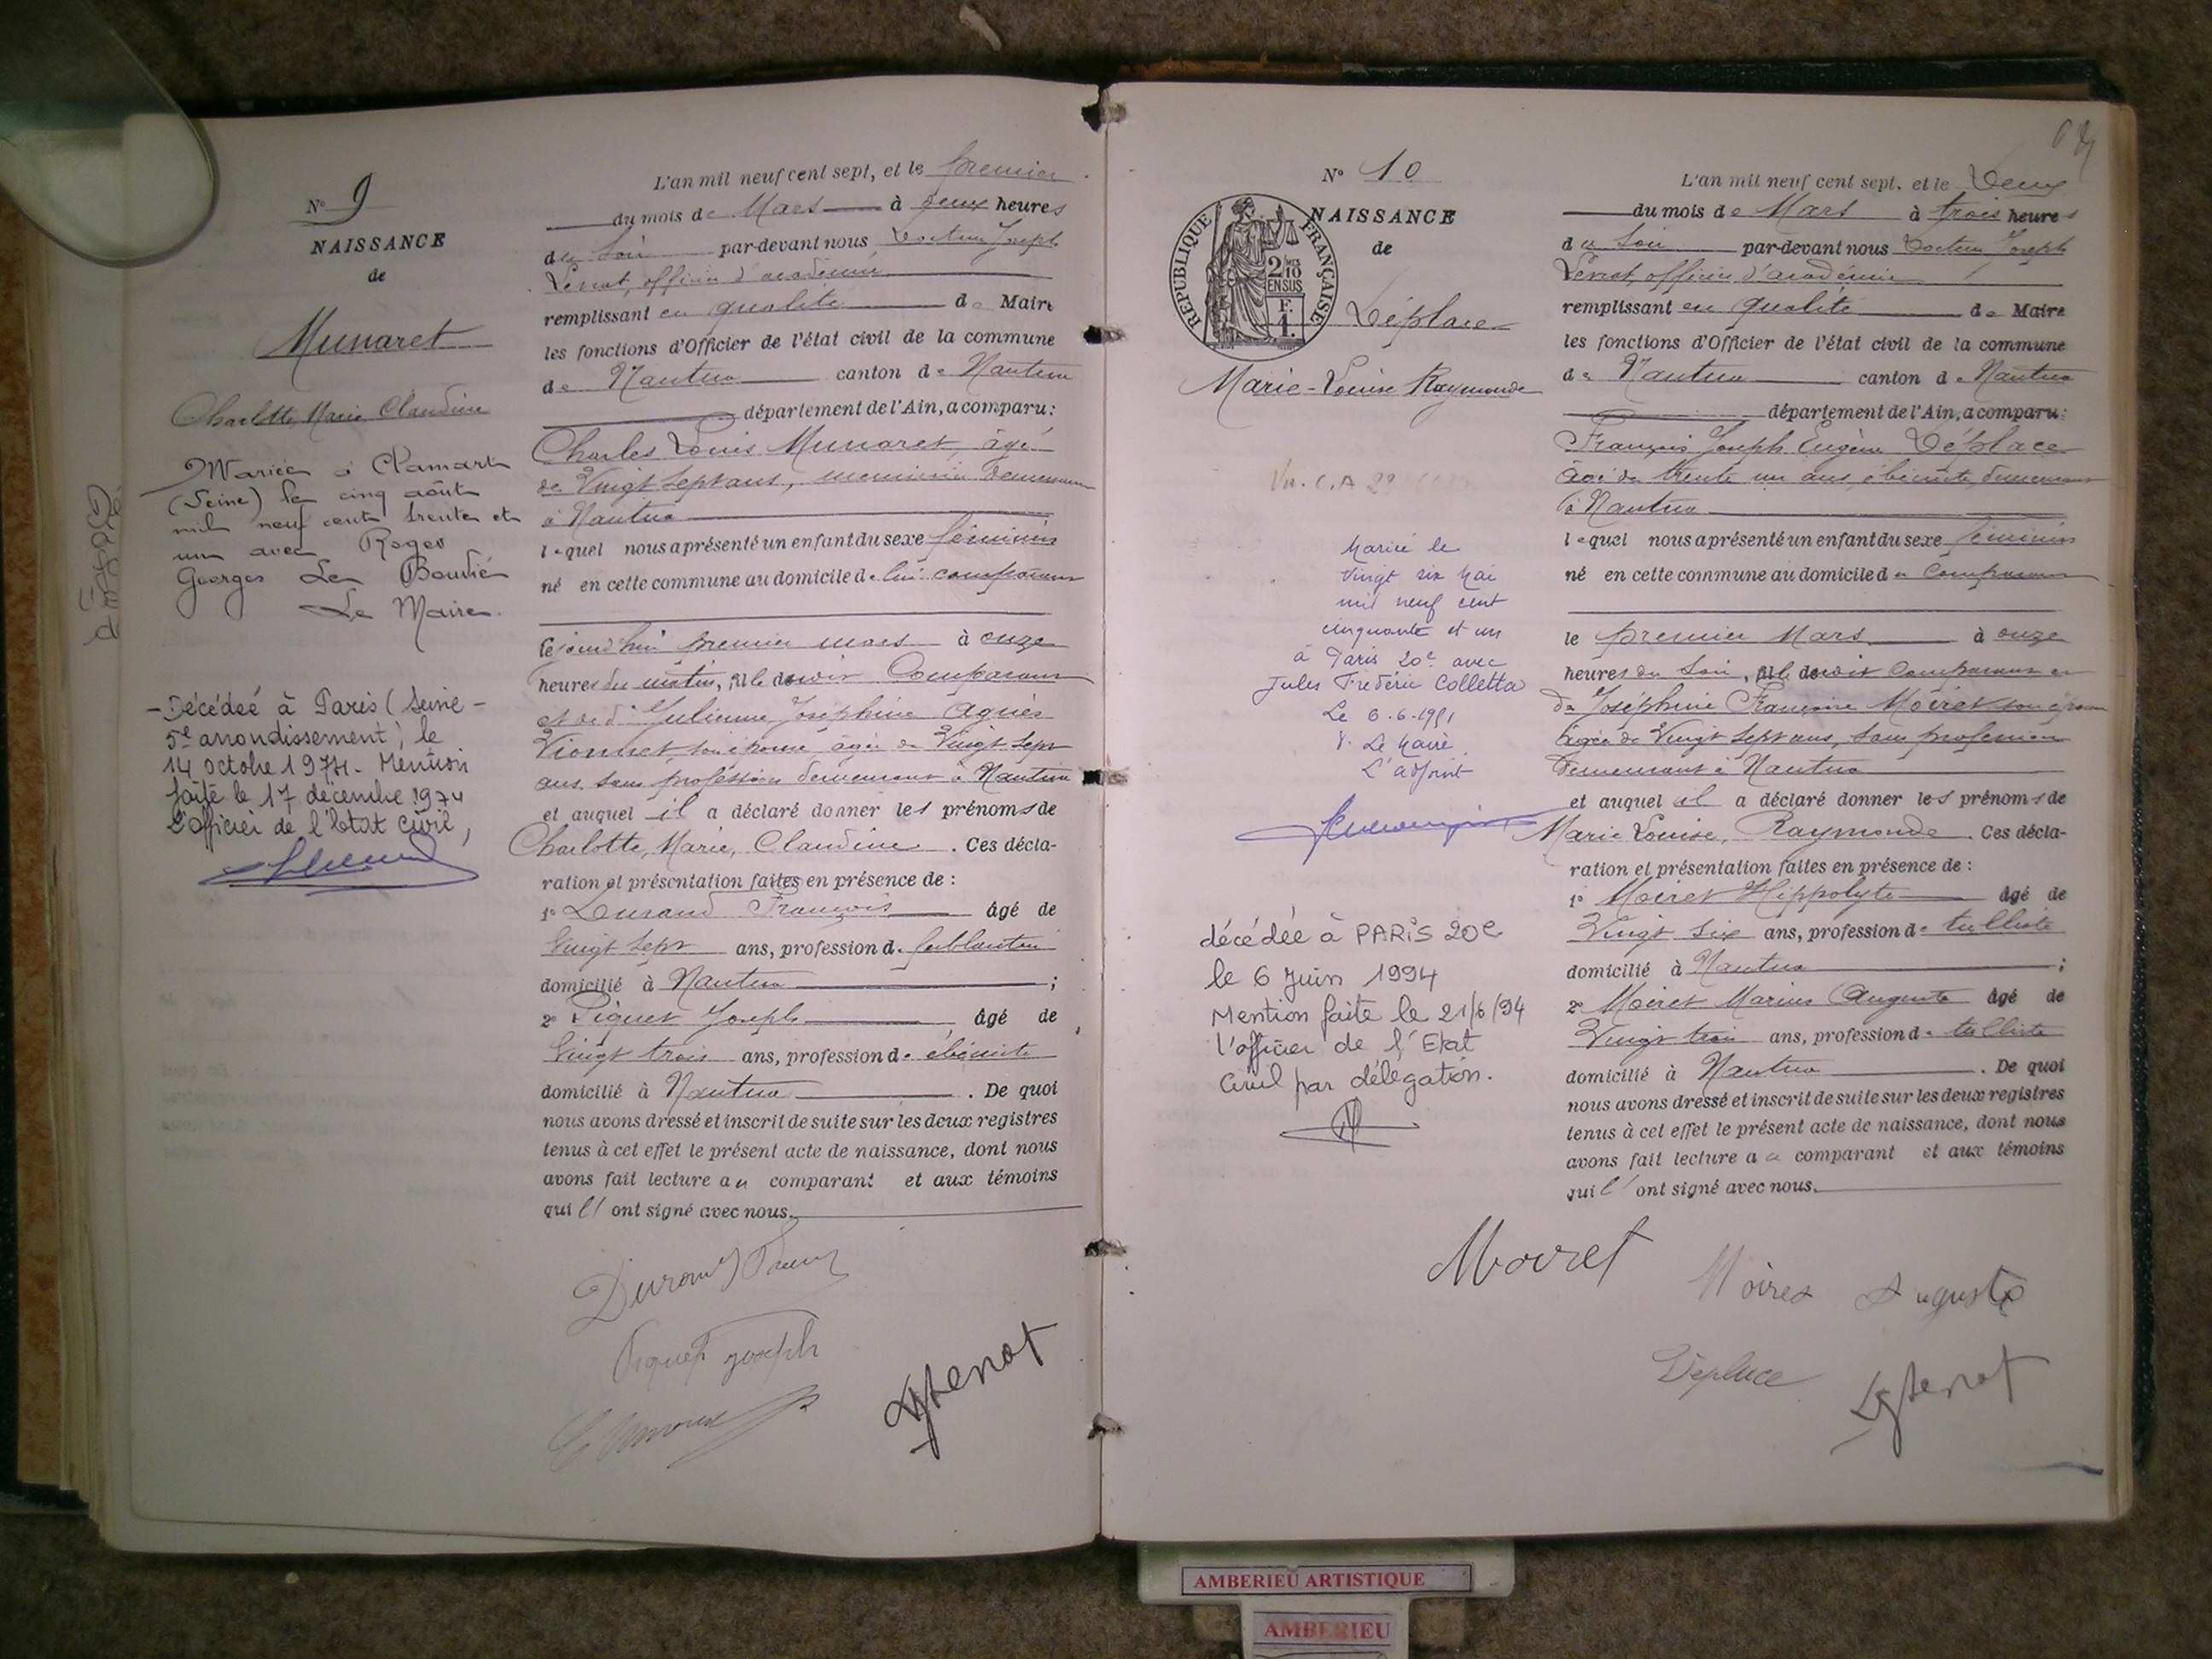 N° 9
NAISSANCE
de
Munaret
Charlotte Marie Claudine
Mariée à Clamart
(Seine) le cinq août
mil neuf cent trente et
un avec Roger
Georges Le
Le Maire.
- Décédée à Paris (Seine -
5e arrondissement), le
14 octobre 1974. Mention
faite le 17 décembre 1974
L'officier de l'Etat civil,
L'an mil neuf cent sept, et le premier
du mois de Mars à deux heures
du soir par-devant nous Docteur Joseph
officier d'académie
remplissant en qualité de Maire
les fonctions d'Officier de l'état civil de la commune
de Nantua canton de Nantua
département de l'Ain, a comparu:
Charles Louis Munaret, âgé
de Vingt sept ans, menuisier demeurant
à Nantua
lequel nous a présenté un enfant du sexe féminin
né en cette commune au domicile de lui comparant
cejourd'hui premier mars à onze
heures du matin, fille de lui Comparant
et de de Julienne Joséphine Agnès
Vionnet, son épouse âgée de Vingt sept
ans, sans profession demeurant à Nantua
et auquel il a déclaré donner les prénoms de
Charlotte, Marie, Claudine. Ces décla-
ration et présentation faites en présence de :
1° Durand François âgé de
Vingt sept ans, profession de ferblantier
domicilié à Nantua ;
2° Piquet Joseph âgé de
Vingt trois ans, profession de ébéniste
domicilié à Nantua . De quoi
nous avons dressé et inscrit de suite sur les deux registres
tenus à cet effet le présent acte de naissance, dont nous
avons fait lecture au comparant et aux témoins
qui ont signé avec nous.
Durand
Piquet Joseph
N° 10
NAISSANCE
de
REPUBLIQUE FRANÇAISE
2/10 EN SUS
F. 1.
Déplace
Marie-Louise Raymonde
Mariée le
vingt six Mai
mil neuf cent
cinquante et un
à Paris 20e avec
Jules Frédéric Colletta
Le 6.6.1951
P. Le Maire,
L'adjoint
décédée à PARIS 20e
le 6 Juin 1994
Mention faite le 21/6/94
L'officier de l'Etat
Civil par délégation.
L'an mil neuf cent sept, et le Deux
du mois de Mars à trois heures
du soir par-devant nous Docteur Joseph
officier d'académie
remplissant en qualité de Maire
les fonctions d'Officier de l'état civil de la commune
de Nantua canton de Nantua
département de l'Ain, a comparu:
François Joseph Eugène Déplace
âgé de trente un ans, ébéniste, demeurant
à Nantua
lequel nous a présenté un enfant du sexe féminin
né en cette commune au domicile du Comparant
le premier Mars à onze
heures du soir, fille de lui Comparant et
de Joséphine Françoise Moiret son épouse
âgée de Vingt sept ans, sans profession
demeurant à Nantua
et auquel il a déclaré donner les prénoms de
Marie Louise, Raymonde. Ces décla-
ration et présentation faites en présence de :
1° Moiret Hippolyte âgé de
Vingt six ans, profession de tulliste
domicilié à Nantua ;
2° Moiret Marius Auguste âgé de
Vingt trois ans, profession de tulliste
domicilié à Nantua . De quoi
nous avons dressé et inscrit de suite sur les deux registres
tenus à cet effet le présent acte de naissance, dont nous
avons fait lecture au comparant et aux témoins
qui ont signé avec nous.
Moiret
Moiret Auguste
Déplace
AMBERIEU ARTISTIQUE
AMBERIEU